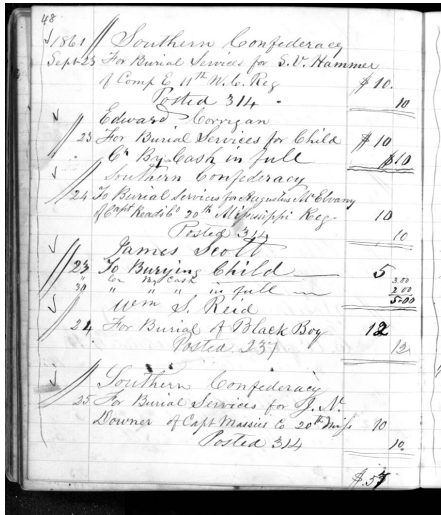 48
1861 Southern Confederacy
Sept 23 For Burial Services for S. V. Hammer
of Comp E 11th N.C. Reg $10.
Posted 314 10
Edward Corrigan
23 For Burial Services for Child $10
Cr By Cash in full $10
Southern Confederacy
24 To Burial Services for Augustus McElvany
of Capt Co 20th Mississippi Reg 10
Posted 314 10
James Scott
23 To Burying Child 5
" Cr By Cash 3.00
30 " " " in full 2.00
5.00
Wm S. Reid
24 For Burial of Black Boy 12
Posted 237 12
Southern Confederacy
25 For Burial Services for J. N.
Downer of Capt Massies Co 20th Miss 10
Posted 314 10